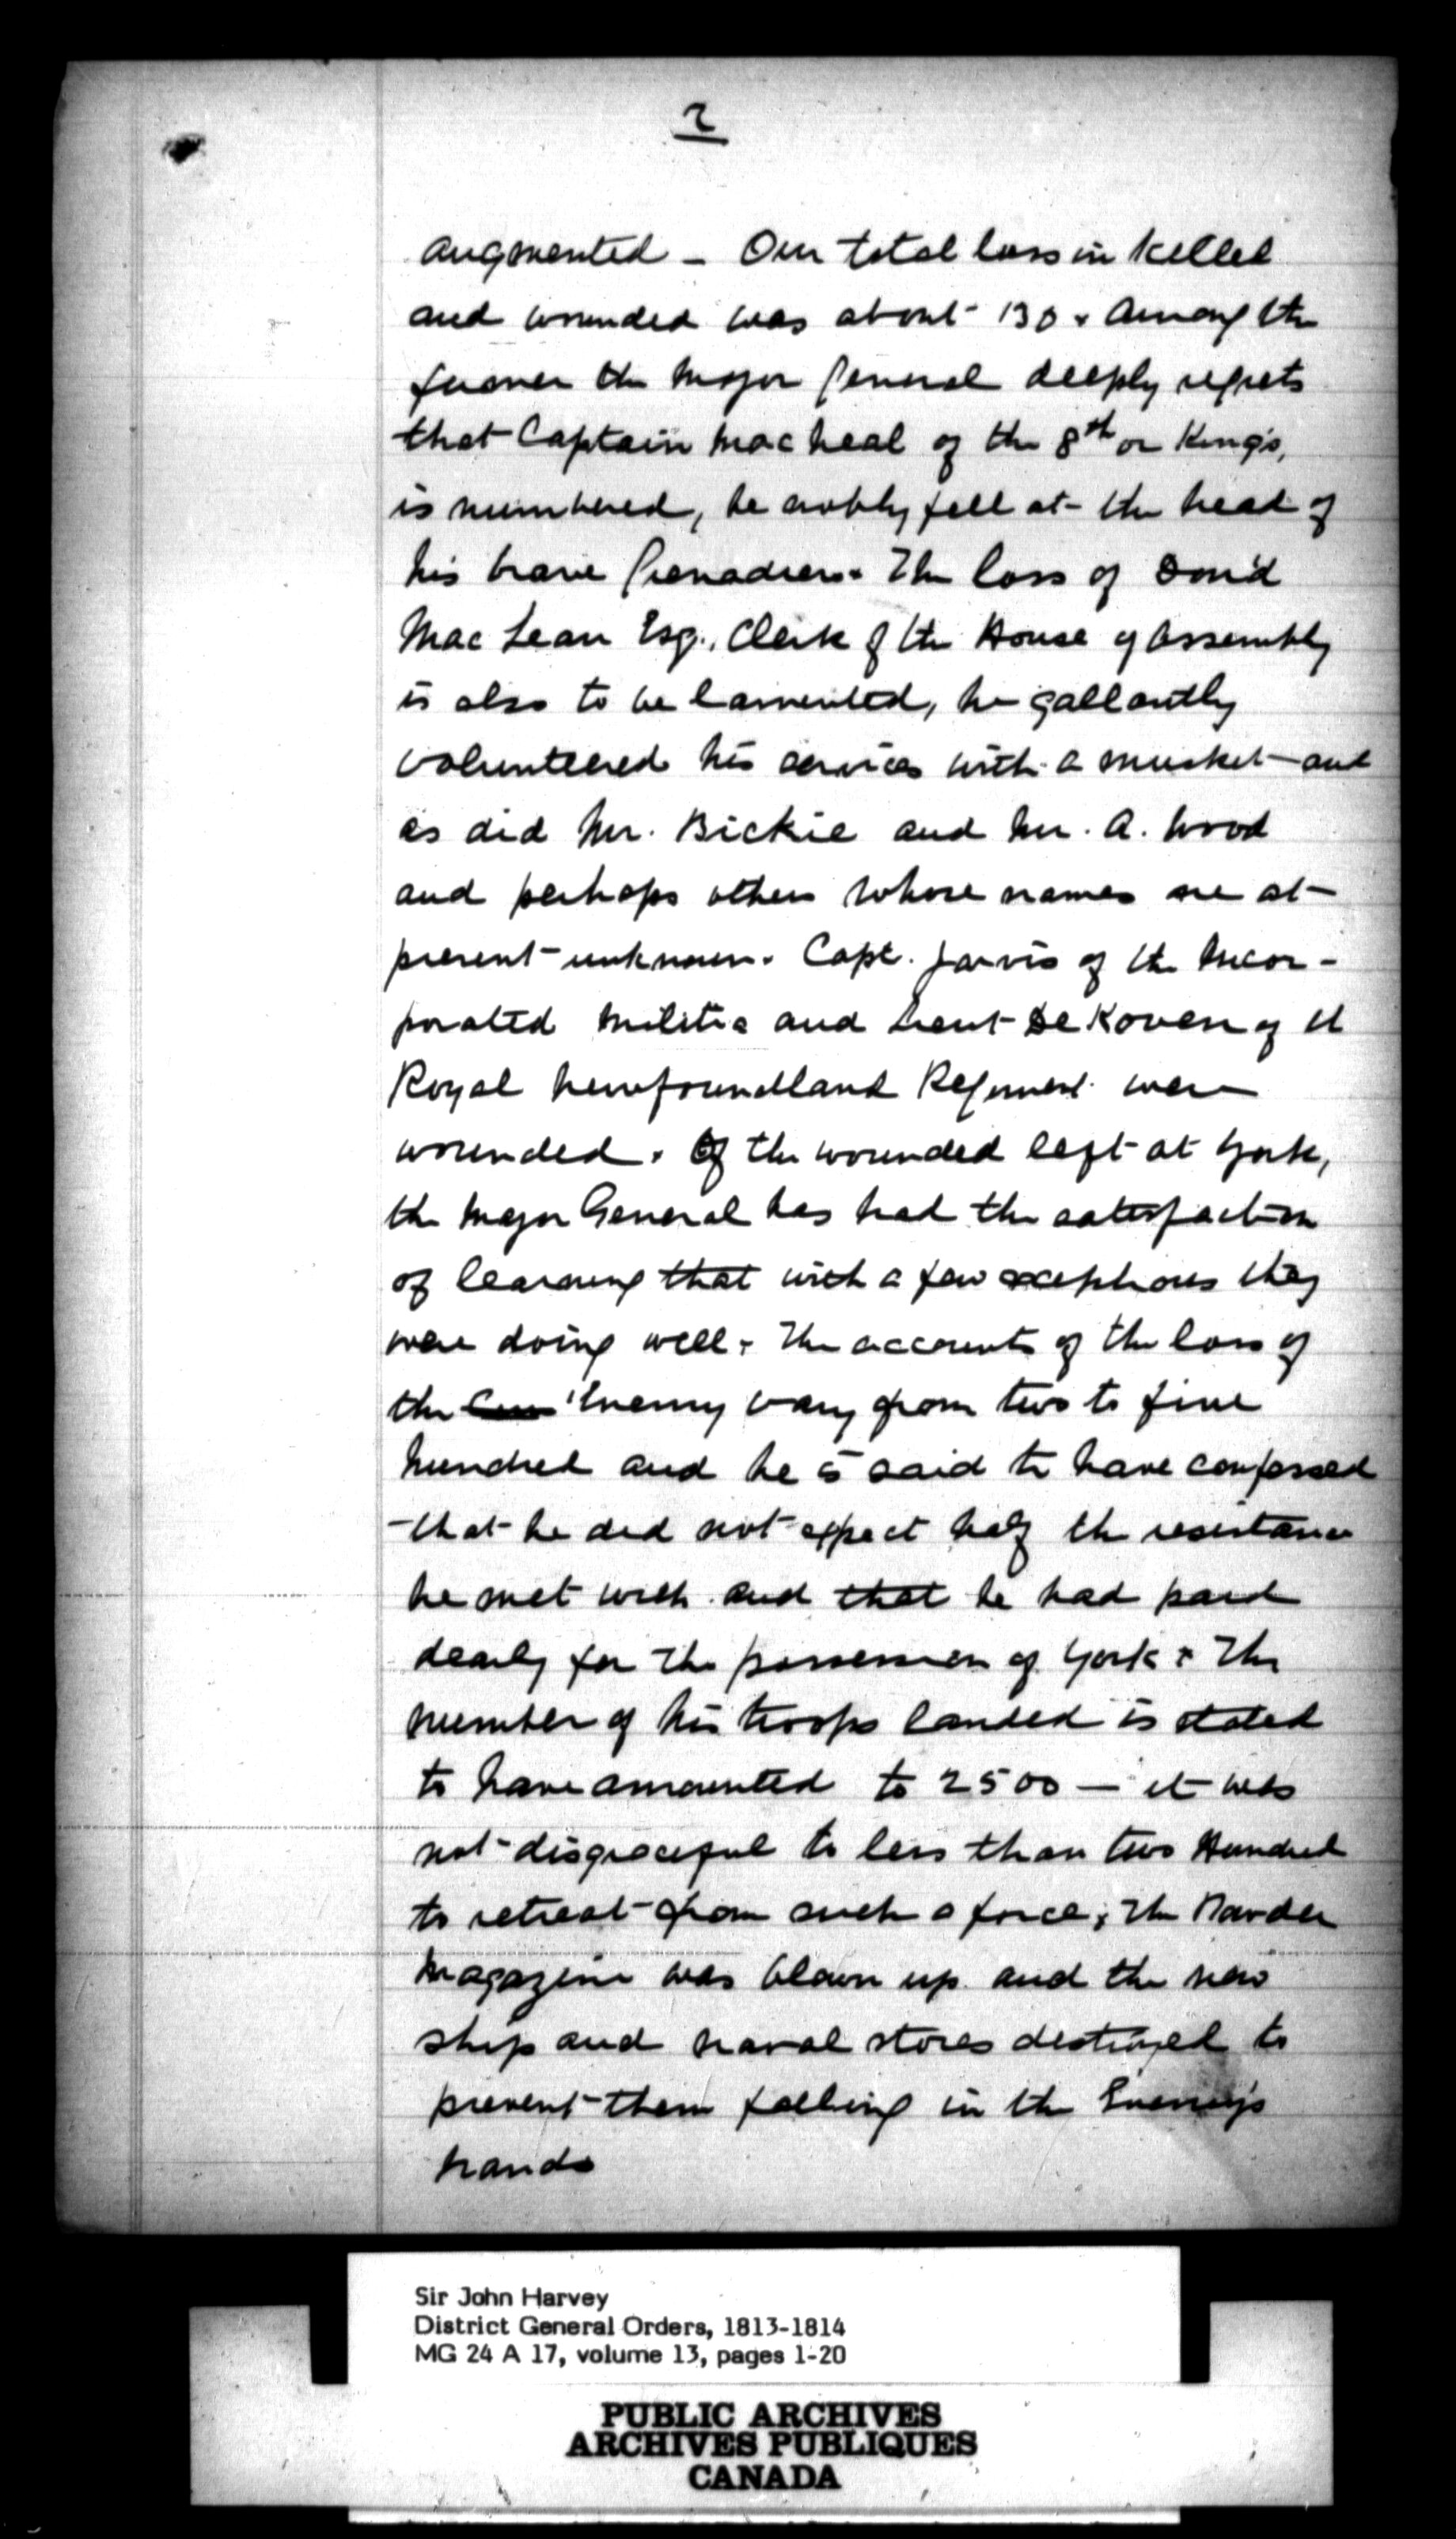 2
augmented - Our total loss in killed
and wounded was about 130. Among the
former the Major General deeply regrets
that Captain MacNeal of the 8th or King's,
is numbered, he nobly fell at the head of
his brave Grenadiers. The loss of Don'd
MacLean Esq., Clerk of the House of Assembly
is also to be lamented, he gallantly
volunteered his services with a musket and
as did Mr. Bickie and Mr. A. Wood
and perhaps others whose names are at
present unknown. Capt. Jarvis of the Incor-
porated Militia and Lieut De Koven of the
Royal Newfoundland Regiment were
wounded. Of the wounded left at York,
the Major General has had the satisfaction
of learning that with a few exceptions they
were doing well. The accounts of the loss of
the Enemy vary from two to five
hundred and he is said to have confessed
that he did not expect half the resistance
he met with and that he had paid
dearly for the possession of York. The
number of his troops landed is stated
to have amounted to 2500 — it was
not disgraceful to less than two Hundred
to retreat from such a force; the Powder
Magazine was blown up and the new
ship and naval stores destroyed to
prevent them falling in the Enemy's
hands
Sir John Harvey
District General Orders, 1813-1814
MG 24 A 17, volume 13, pages 1-20
PUBLIC ARCHIVES
ARCHIVES PUBLIQUES
CANADA